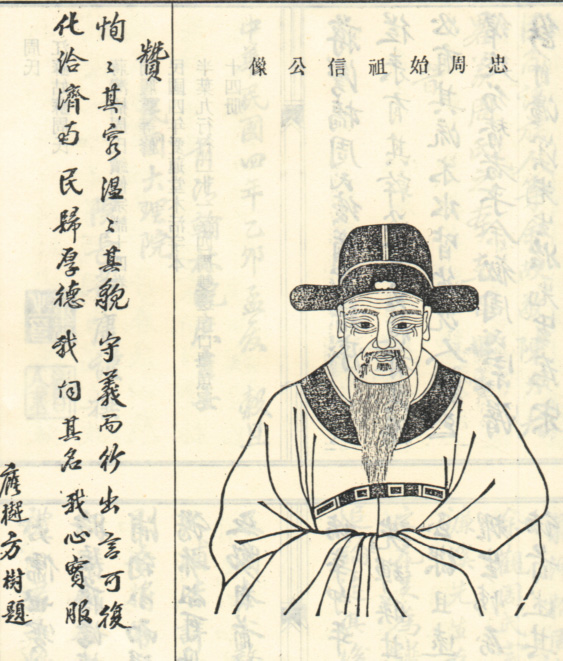 忠周始祖信公像
贊
恂〻其容溫〻其貌守義而行出言可復
化洽濟南民歸厚德我其名我心實服
方樹題